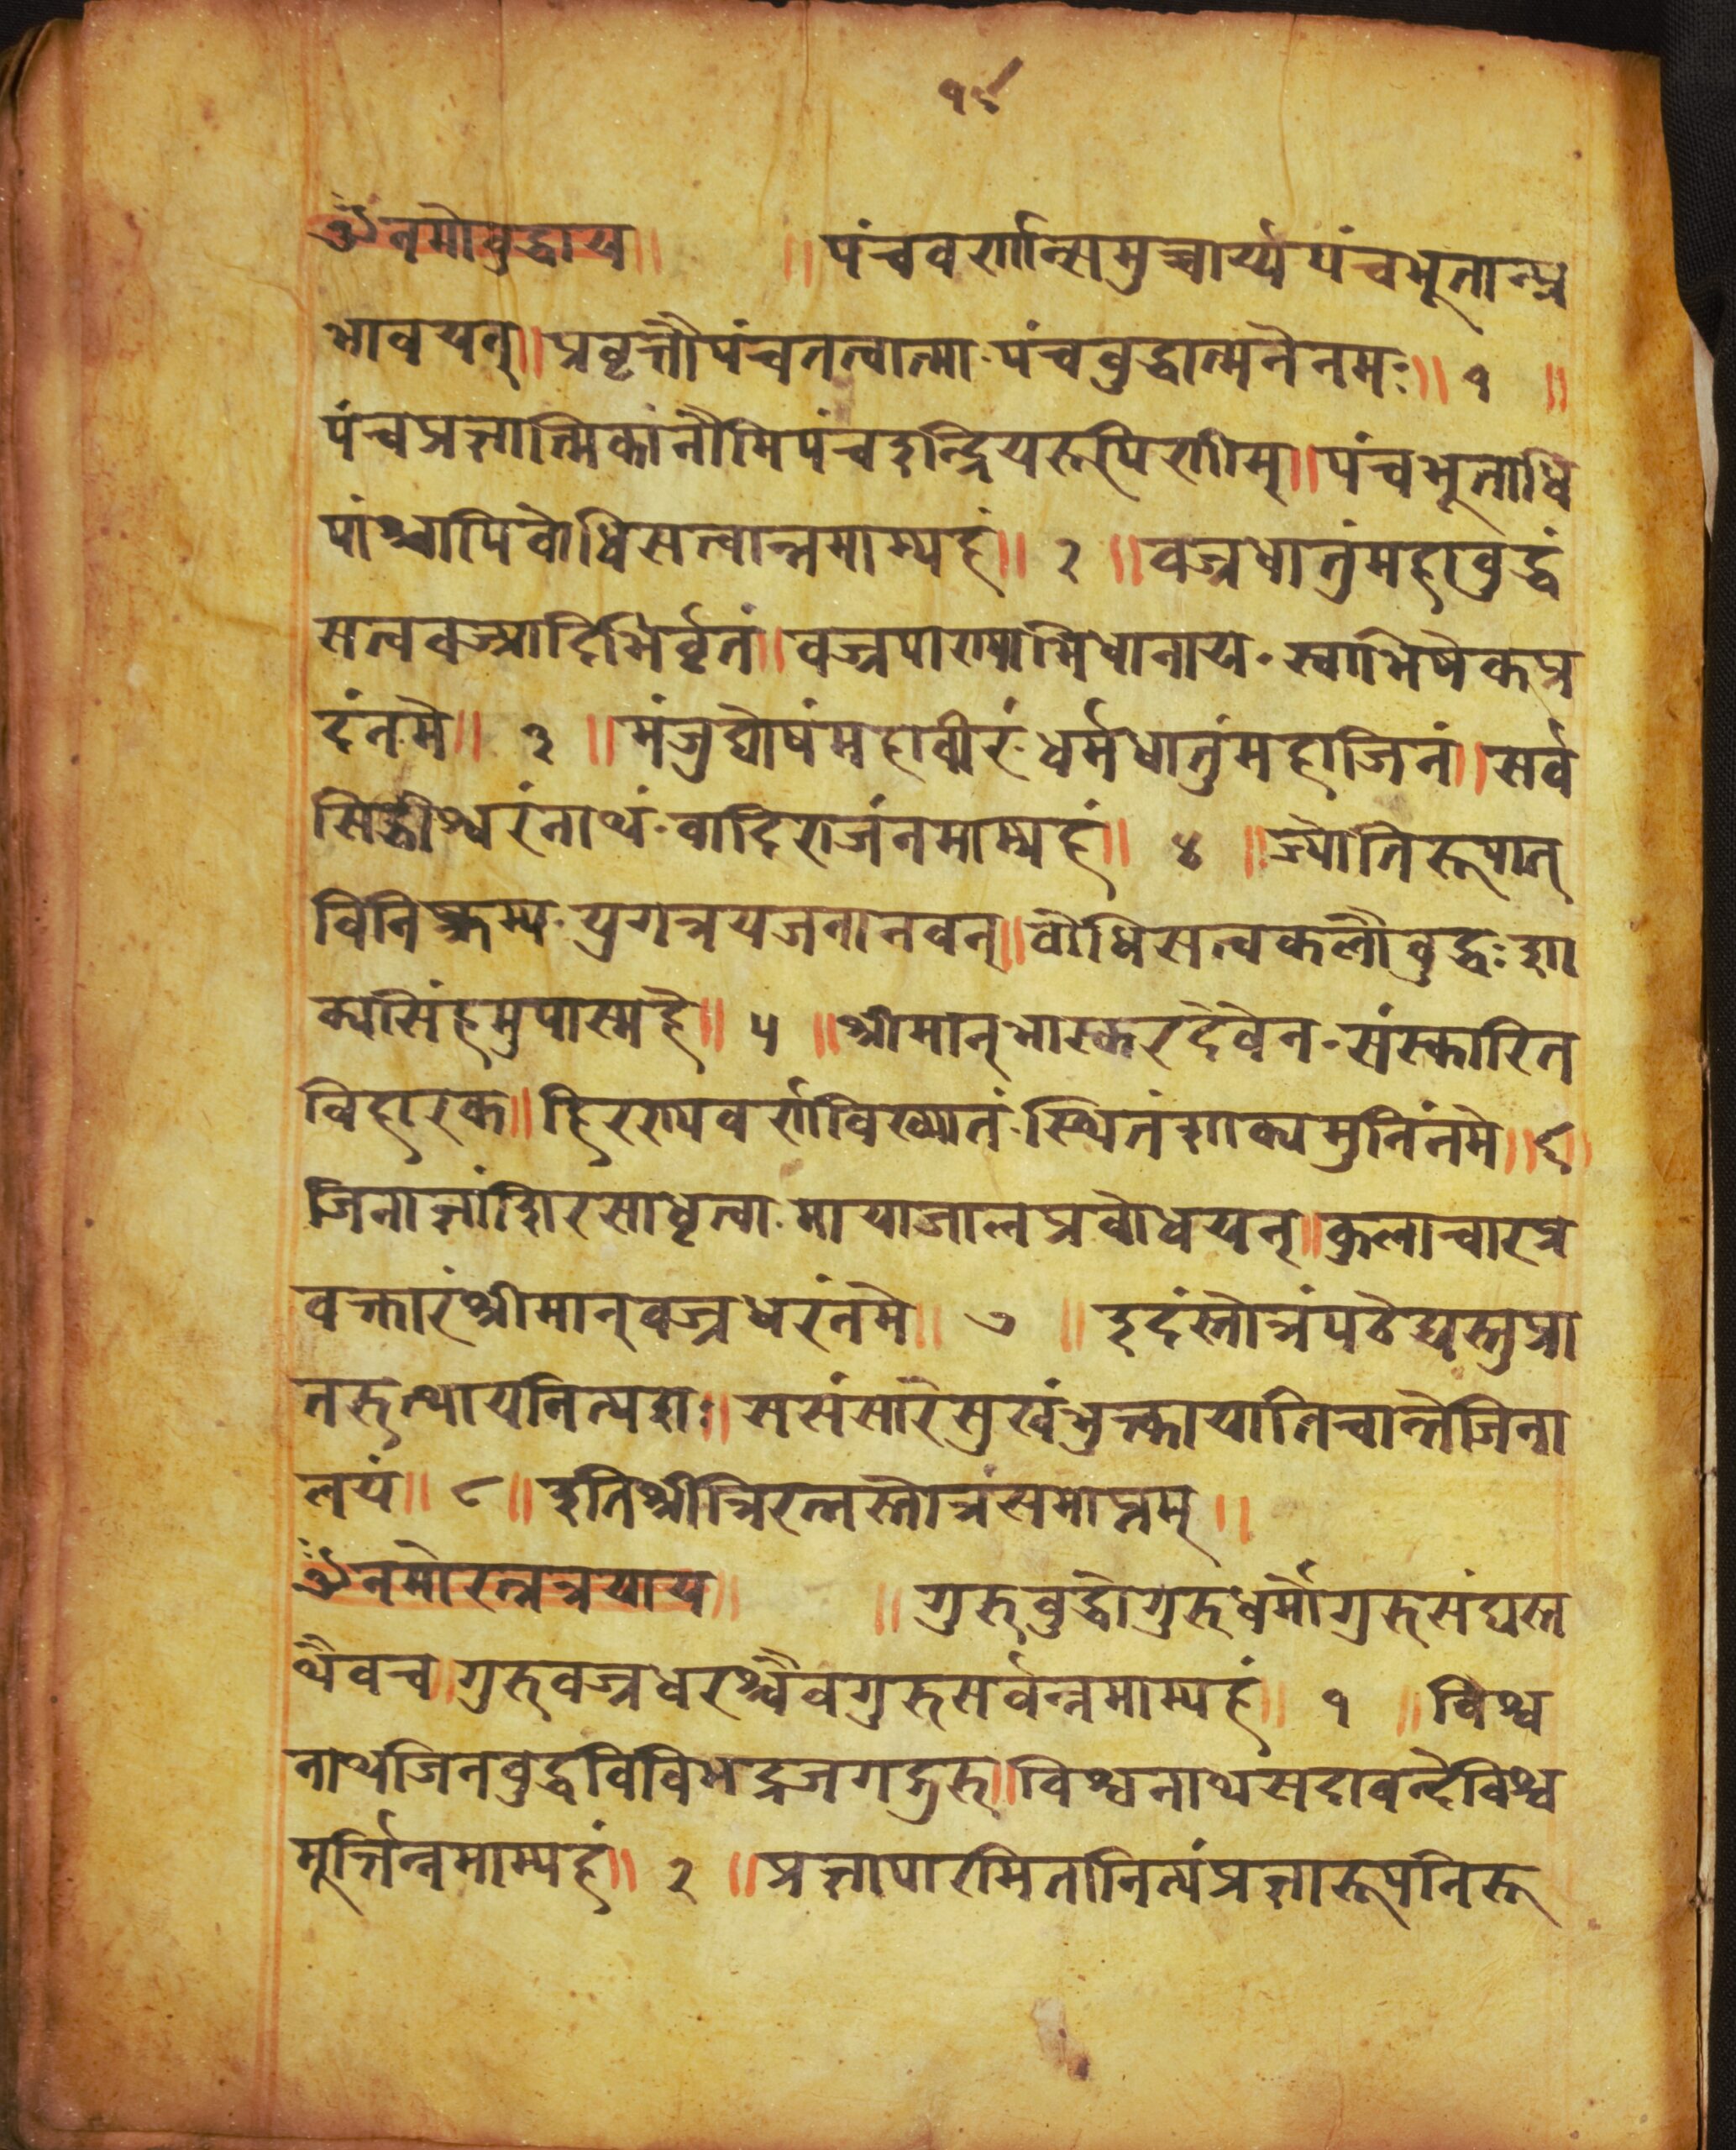 १९
ॐनमोवुद्धाय॥ ॥पंचवर्णान्समुच्चार्य्यपंचभूतान्प्र
भावयत्॥प्रवृत्तौपंचतत्वात्मा-पंचवुद्धात्मनेनमः॥ १ ॥
पंचप्रज्ञात्मिकांनौमिपंचइन्द्रियरूपिणीम्॥पंचभूताधि
पांश्चापिवोधिसत्वान्नमाम्यहं॥ २ ॥वज्रधातुंमहावुद्धं
सत्ववज्र्यादिभिर्वृतं॥वज्रपाण्याभिधानाय-स्वाभिषेकप्र
दंनमे॥ ३ ॥मंजुघोषंमहावीरं-धर्मधातुंमहाजिनं॥सर्व
सिद्धीश्वरंनाथं-वादिराजंनमाम्यहं॥ ४ ॥ज्योतिरूपात्
विनिष्क्रम्य-युगत्रयजनानवन्॥वोधिसत्वकलौवुद्धः-शा
क्यसिंहमुपास्महे॥ ५ ॥श्रीमान्भास्करदेवेन-संस्कारित
विहारक॥हिरण्यवर्णविख्यातं-स्थितंशाक्यमुनिंनमे॥६॥
जिनाज्ञांशिरसाधृत्वा-मायाजालप्रवोधयन्॥कुलाचारप्र
वक्तारंश्रीमान्वज्रधरंनमे॥ ७ ॥इदंस्तोत्रंपठेद्यस्तुप्रा
तरुत्थायनित्यशः॥ससंसारेसुखंभुक्त्वायातिचान्तेजिना
लयं॥ ८॥इतिश्रीत्रिरत्नस्तोत्रंसमाप्तम्॥
ॐनमोरत्नत्रयाय॥ ॥गुरुवुद्धोगुरुधर्मोगुरुसंघस्त
थैवच॥गुरुवज्रधरश्चैवगुरुसर्वन्नमाम्यहं॥ १ ॥विश्व
नाथजिनवुद्धविविभद्रजगद्गुरु॥विश्वनाथसदावन्देविश्व
मुर्त्तिन्नमाम्यहं॥ २ ॥प्रज्ञापारमितानित्यंप्रज्ञारूपनिरू